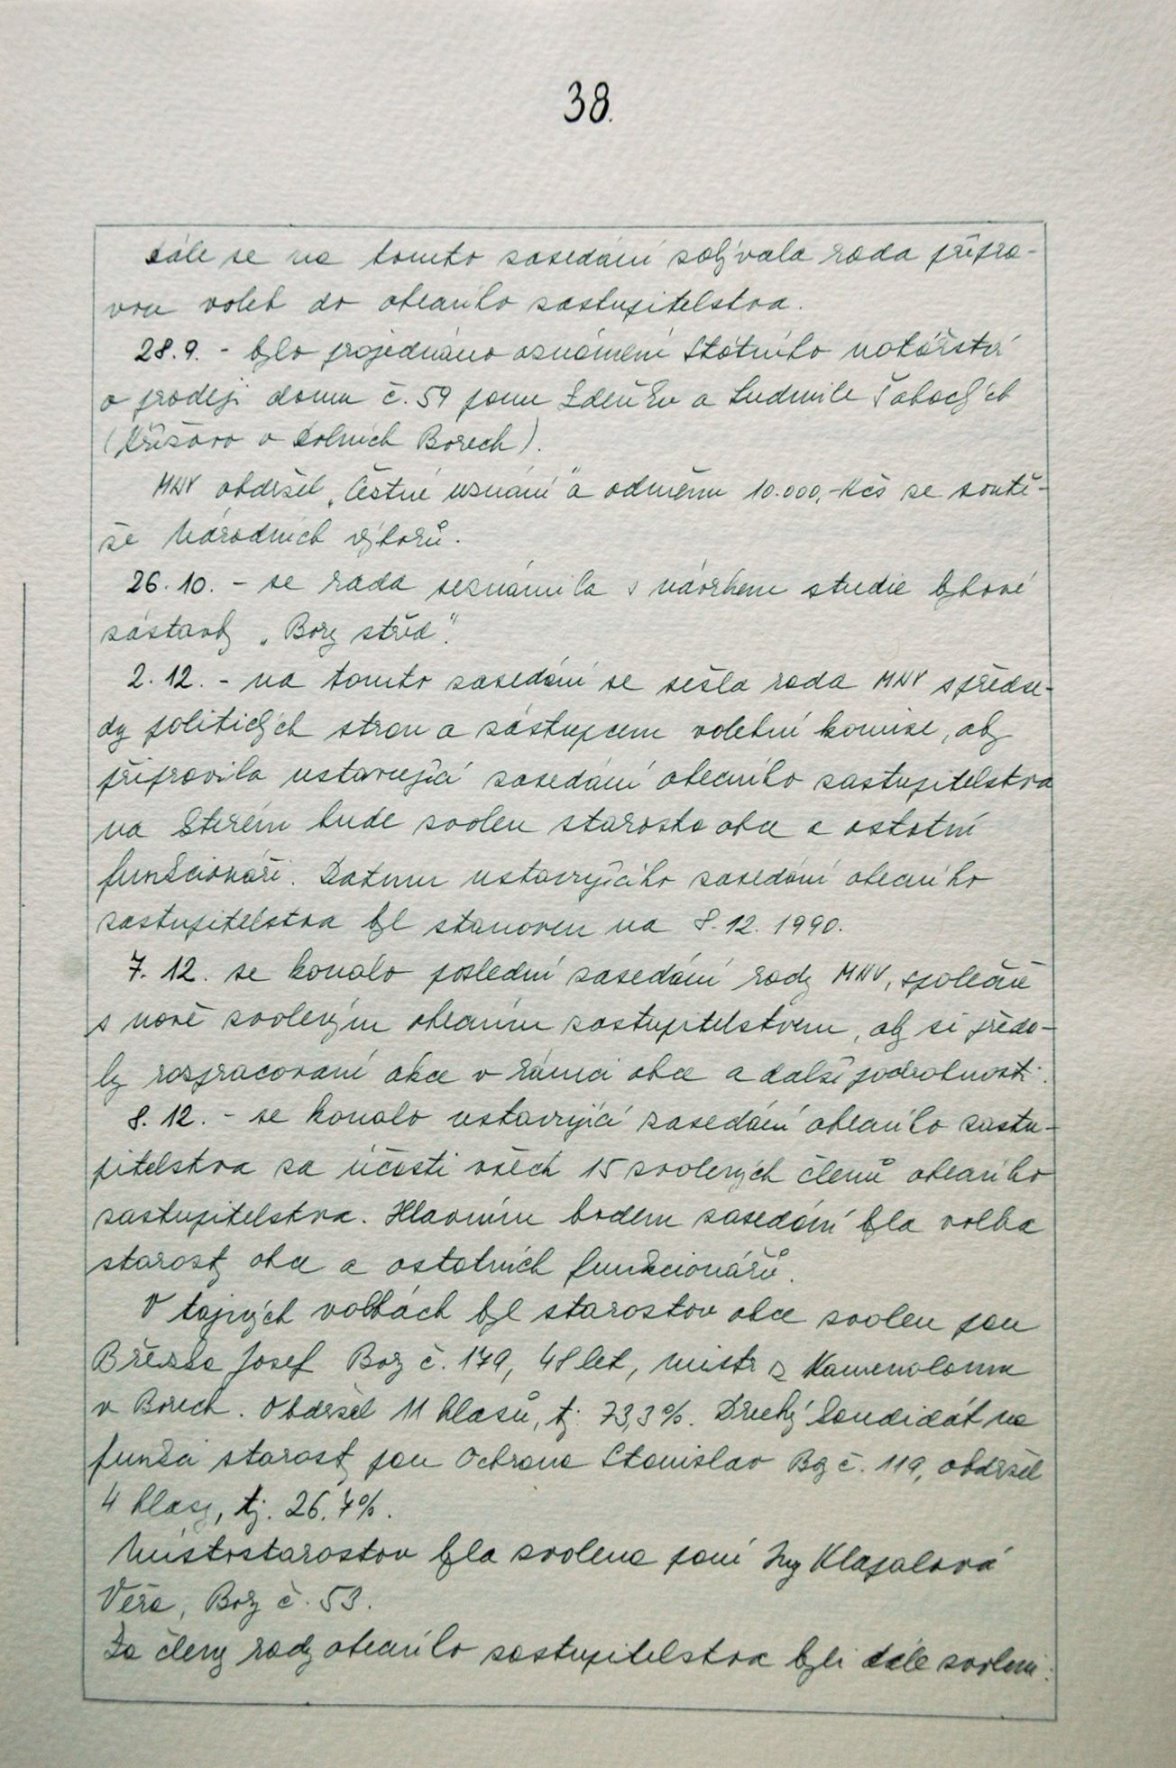 38.
dále se na tomto zasedání zabývala rada přípra-
vou voleb do obecního zastupitelstva.
28.9. - bylo projednáno oznámení Státního notářství
o prodeji domu č. 59 panu Zdeňku a Ludmile
v Dolních Borech).
MNV obdržel „Čestné uznání" a odměnu 10.000,-Kčs ze soutě-
že Národních výborů.
26.10. - se rada seznámila s návrhem studie bytové
zástavby „Bory střed".
2.12. - na tomto zasedání se sešla rada MNV s předse-
dy politických stran a zástupcem volební komise, aby
připravila ustavující zasedání obecního zastupitelstva
na kterém bude zvolen starosta obce a ostatní
funkcionáři. Datum ustavujícího zasedání obecního
zastupitelstva byl stanoven na 8.12. 1990.
7.12. se konalo poslední zasedání rady MNV, společně
s nově zvoleným obecním zastupitelstvem, aby si předa-
ly rozpracované akce v rámci obce a další podrobnosti.
8.12. - se konalo ustavující zasedání obecního zastu-
pitelstva za účasti všech 15 zvolených členů obecního
zastupitelstva. Hlavním bodem zasedání byla volba
starosty obce a ostatních funkcionářů.
V tajných volbách byl starostou obce zvolen pan
Březka Josef Bory č. 179, 48 let, mistr z Kamenolomu
v Borech. Obdržel 11 hlasů, tj. 73,3%. Druhý kandidát na
funkci starosty pan Ochrana Stanislav Bory č. 119, obdržel
4 hlasy, tj. 26,7%.
Místostarostou byla zvolena paní Ing Klapalová
Věra, Bory č. 53.
Za členy rady obecního zastupitelstva byli dále zvoleni: